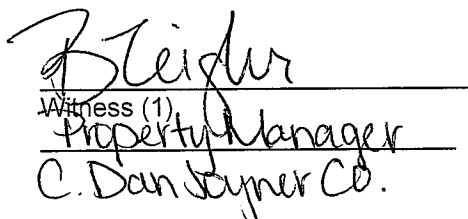 B Zeigler
Witness (1)
Property Manager
C. Dan Joyner Co.